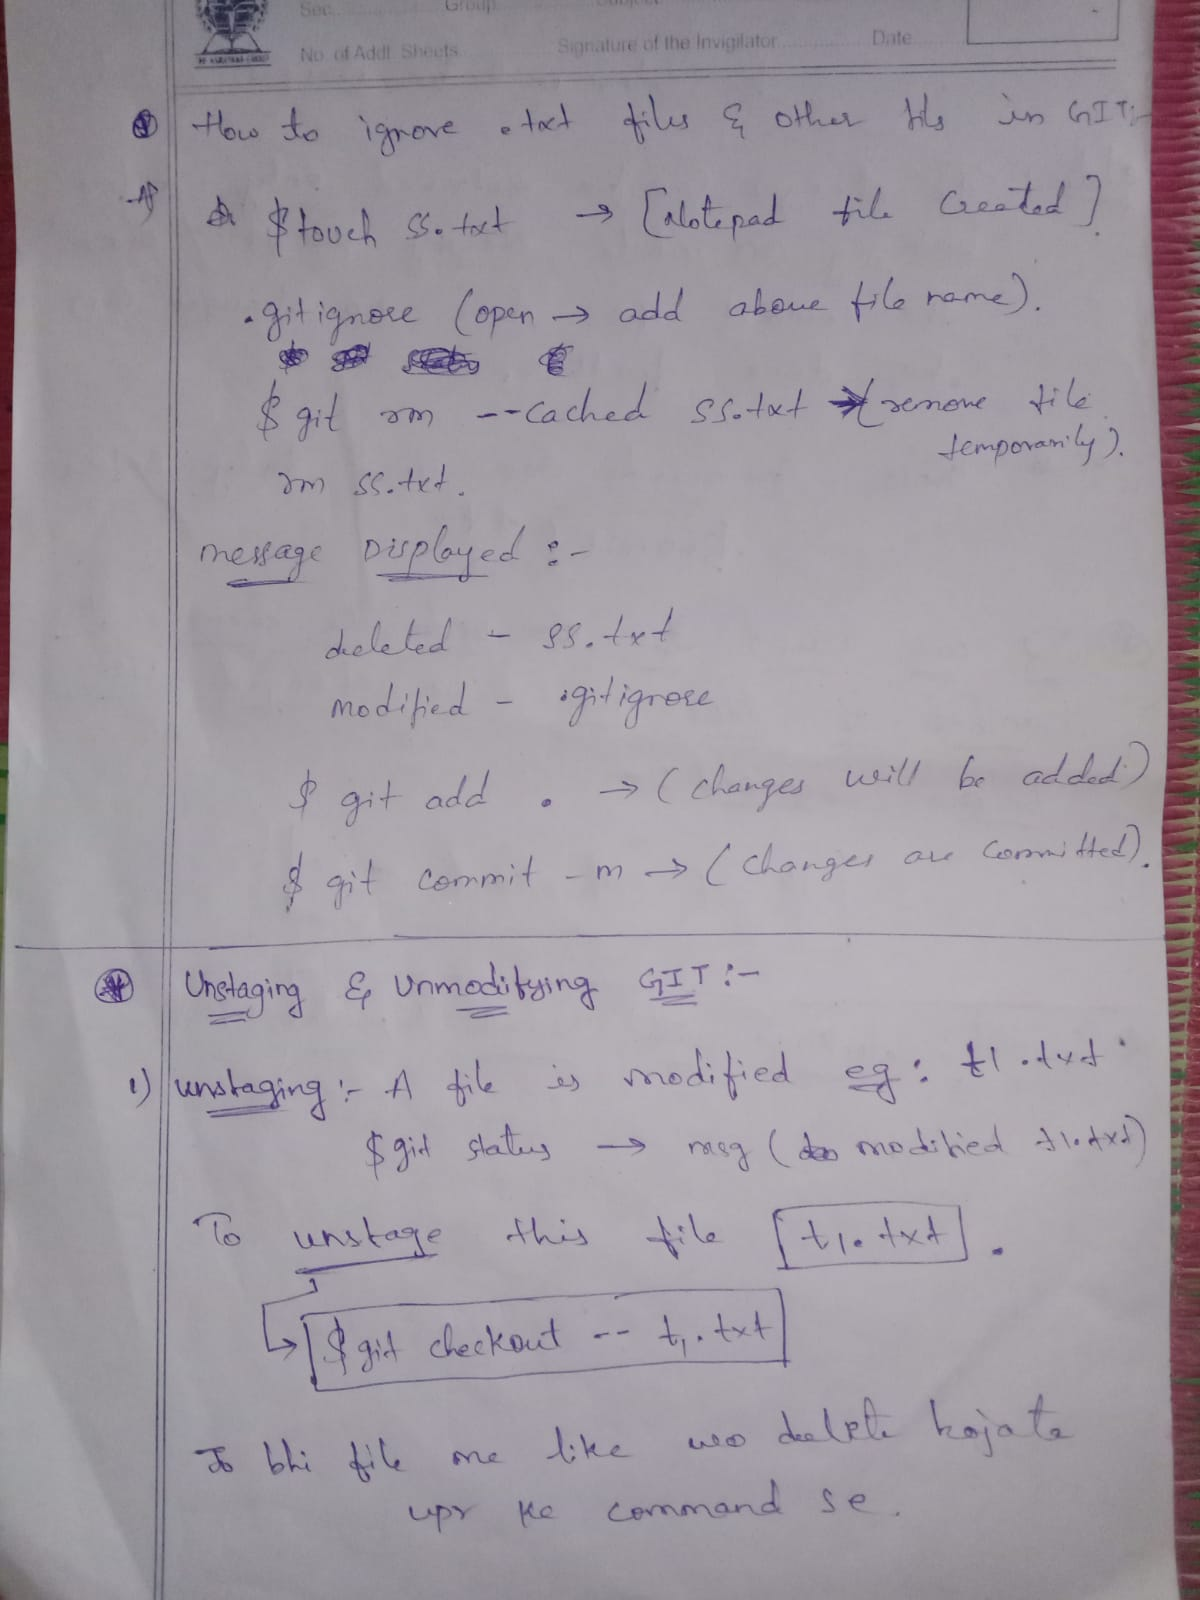 Sec. Group
No. of Addl. Sheets Signature of the Invigilator Date
How to ignore .txt files & other fils in GIT:-
A) $ touch ss.txt → [Notepad file created].
.gitignore (open → add above file name).
$ git rm --cached ss.txt → (remove file
temporarily).
rm ss.txt.
message Displayed :-
deleted - ss.txt
modified - .gitignore
$ git add . → (changes will be added)
$ git commit -m → (changes are committed).
Unstaging & Unmodifying GIT :-
1) unstaging :- A file is modified eg: t1.txt
$ git status → msg (modified t1.txt)
To unstage this file [t1.txt].
$ git checkout -- t1.txt
Jo bhi file me like wo deelete hojata
upr ke command se.